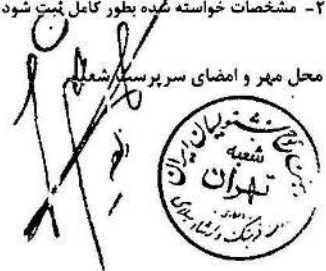 ۲- مشخصات خواسته شده بطور کامل ثبت شود
محل مهر و امضای سرپرست شعبه
خوشنویسان ایران
شعبه
تهران